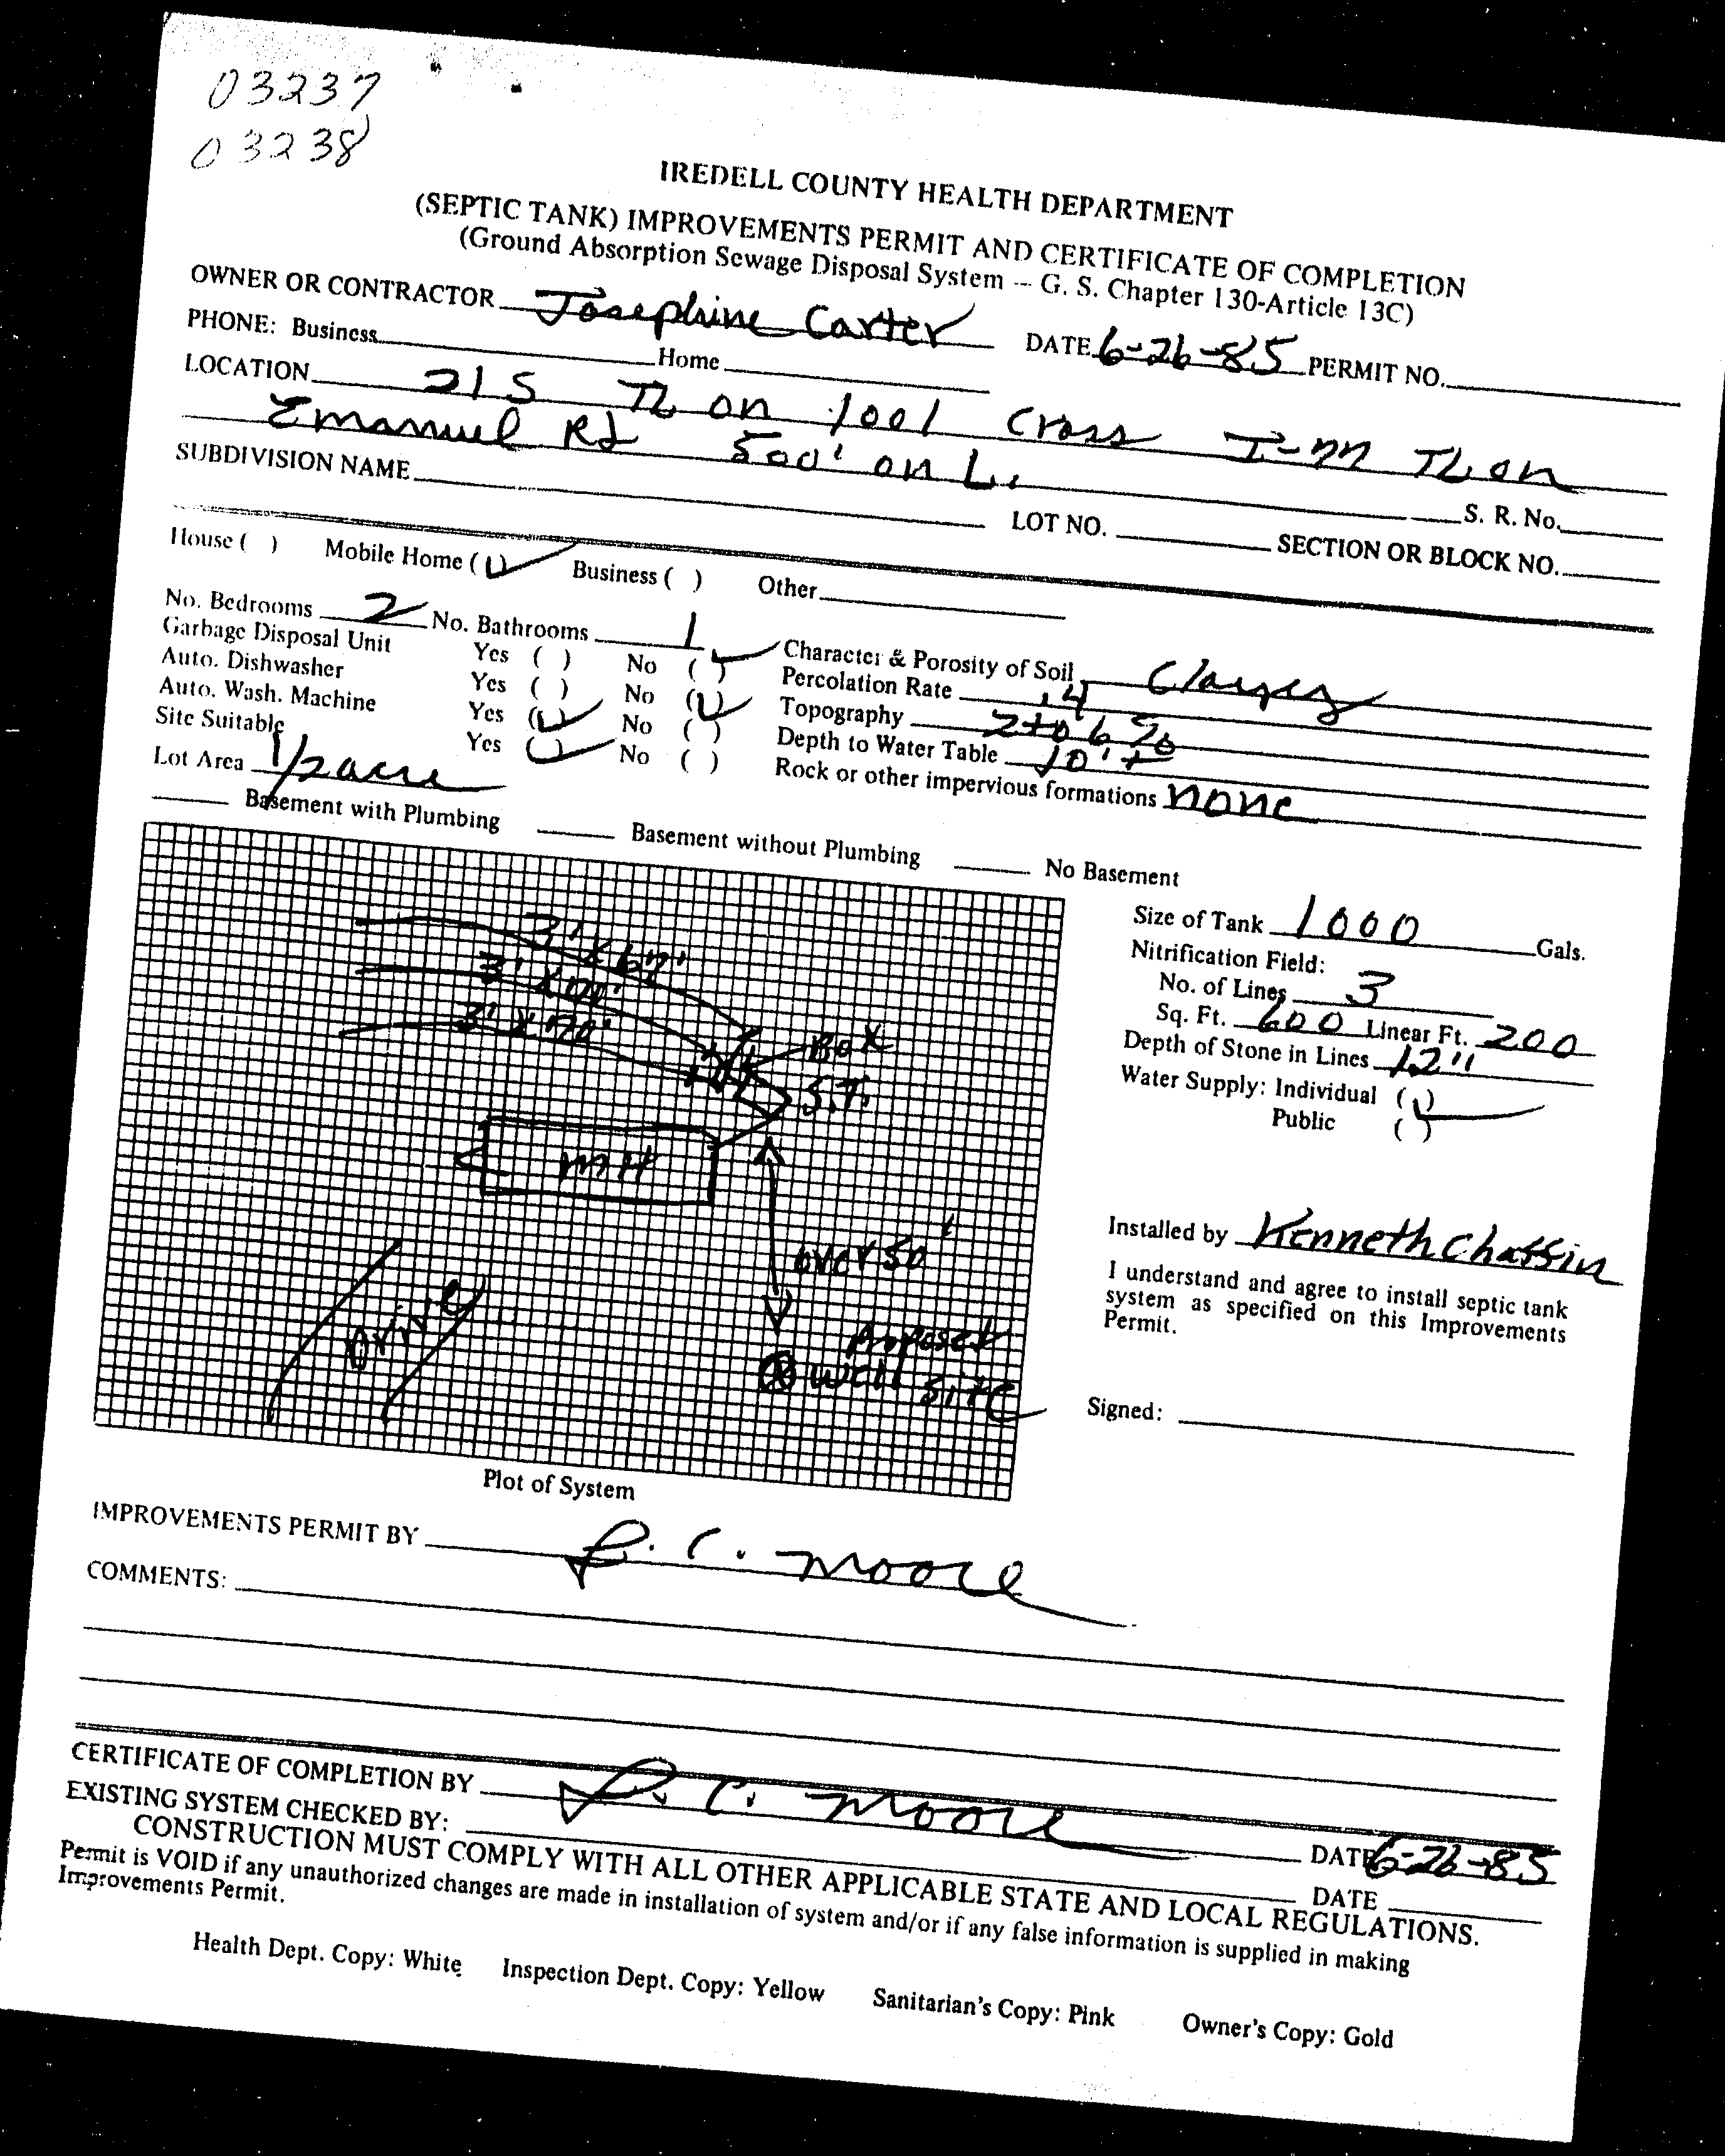 03237
03238
IREDELL COUNTY HEALTH DEPARTMENT
(SEPTIC TANK) IMPROVEMENTS PERMIT AND CERTIFICATE OF COMPLETION
(Ground Absorption Sewage Disposal System -- G. S. Chapter 130-Article 13C)
OWNER OR CONTRACTOR Josephine Carter DATE 6-26-85 PERMIT NO.
PHONE: Business Home
LOCATION 21 S TL on 1001 Cross I-77 TL on
Emanuel Rd 500' on L.
S. R. No.
SUBDIVISION NAME LOT NO. SECTION OR BLOCK NO.
House ( ) Mobile Home (✓) Business ( ) Other
No. Bedrooms 2 No. Bathrooms 1
Garbage Disposal Unit Yes ( ) No (✓)
Auto. Dishwasher Yes ( ) No (✓)
Auto. Wash. Machine Yes (✓) No ( )
Site Suitable Yes (✓) No ( )
Lot Area 1/2 acre
Character & Porosity of Soil Clayey
Percolation Rate .4
Topography 2 to 6 %
Depth to Water Table 10'+
Rock or other impervious formations none
Basement with Plumbing Basement without Plumbing No Basement
3' x 67'
3' x
3' x 70'
Box
S.T.
MH
over 50'
Drive
Proposed
Well Site
Plot of System
Size of Tank 1000 Gals.
Nitrification Field:
No. of Lines 3
Sq. Ft. 600 Linear Ft. 200
Depth of Stone in Lines 12"
Water Supply: Individual (✓)
Public ( )
Installed by Kenneth Chaffin
I understand and agree to install septic tank
system as specified on this Improvements
Permit.
Signed:
IMPROVEMENTS PERMIT BY L. C. Moore
COMMENTS:
CERTIFICATE OF COMPLETION BY L. C. Moore DATE 6-26-85
EXISTING SYSTEM CHECKED BY: DATE
CONSTRUCTION MUST COMPLY WITH ALL OTHER APPLICABLE STATE AND LOCAL REGULATIONS.
Permit is VOID if any unauthorized changes are made in installation of system and/or if any false information is supplied in making
Improvements Permit.
Health Dept. Copy: White Inspection Dept. Copy: Yellow Sanitarian's Copy: Pink Owner's Copy: Gold